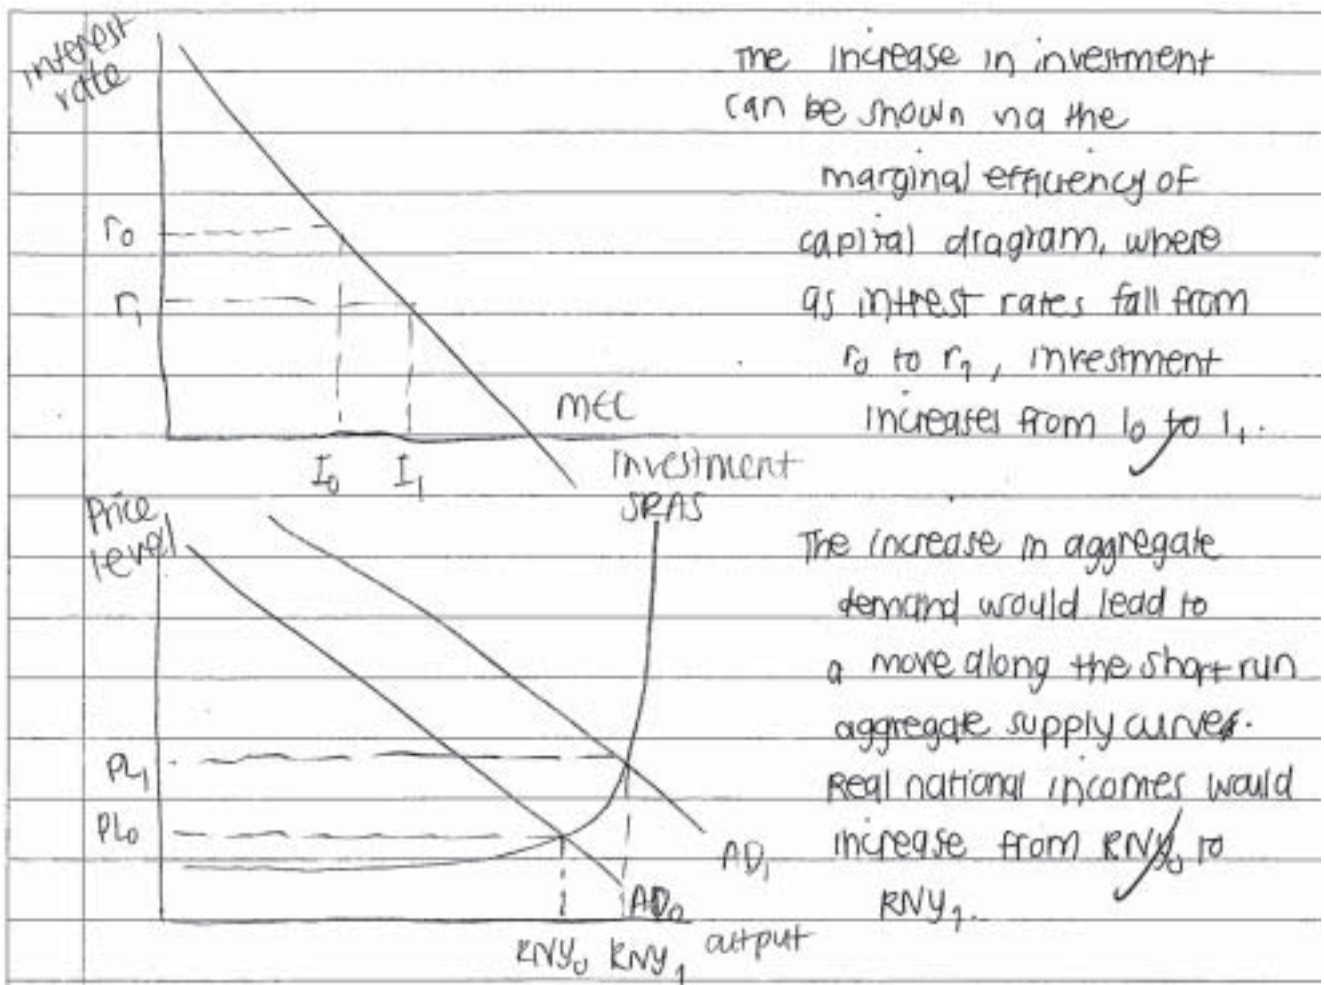 interest
rate
r₀
r₁
MEC
I₀ I₁
investment
The increase in investment
can be shown via the
marginal efficiency of
capital diagram, where
as intrest rates fall from
r₀ to r₁, investment
increases from I₀ to I₁.
Price
level
SRAS
PL₁
PL₀
AD₁
AD₀
RNY₀ RNY₁ output
The increase in aggregate
demand would lead to
a move along the short run
aggregate supply curve.
Real national incomes would
increase from RNY₀ to
RNY₁.